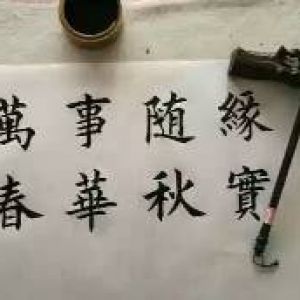 萬事随緣
春華秋實